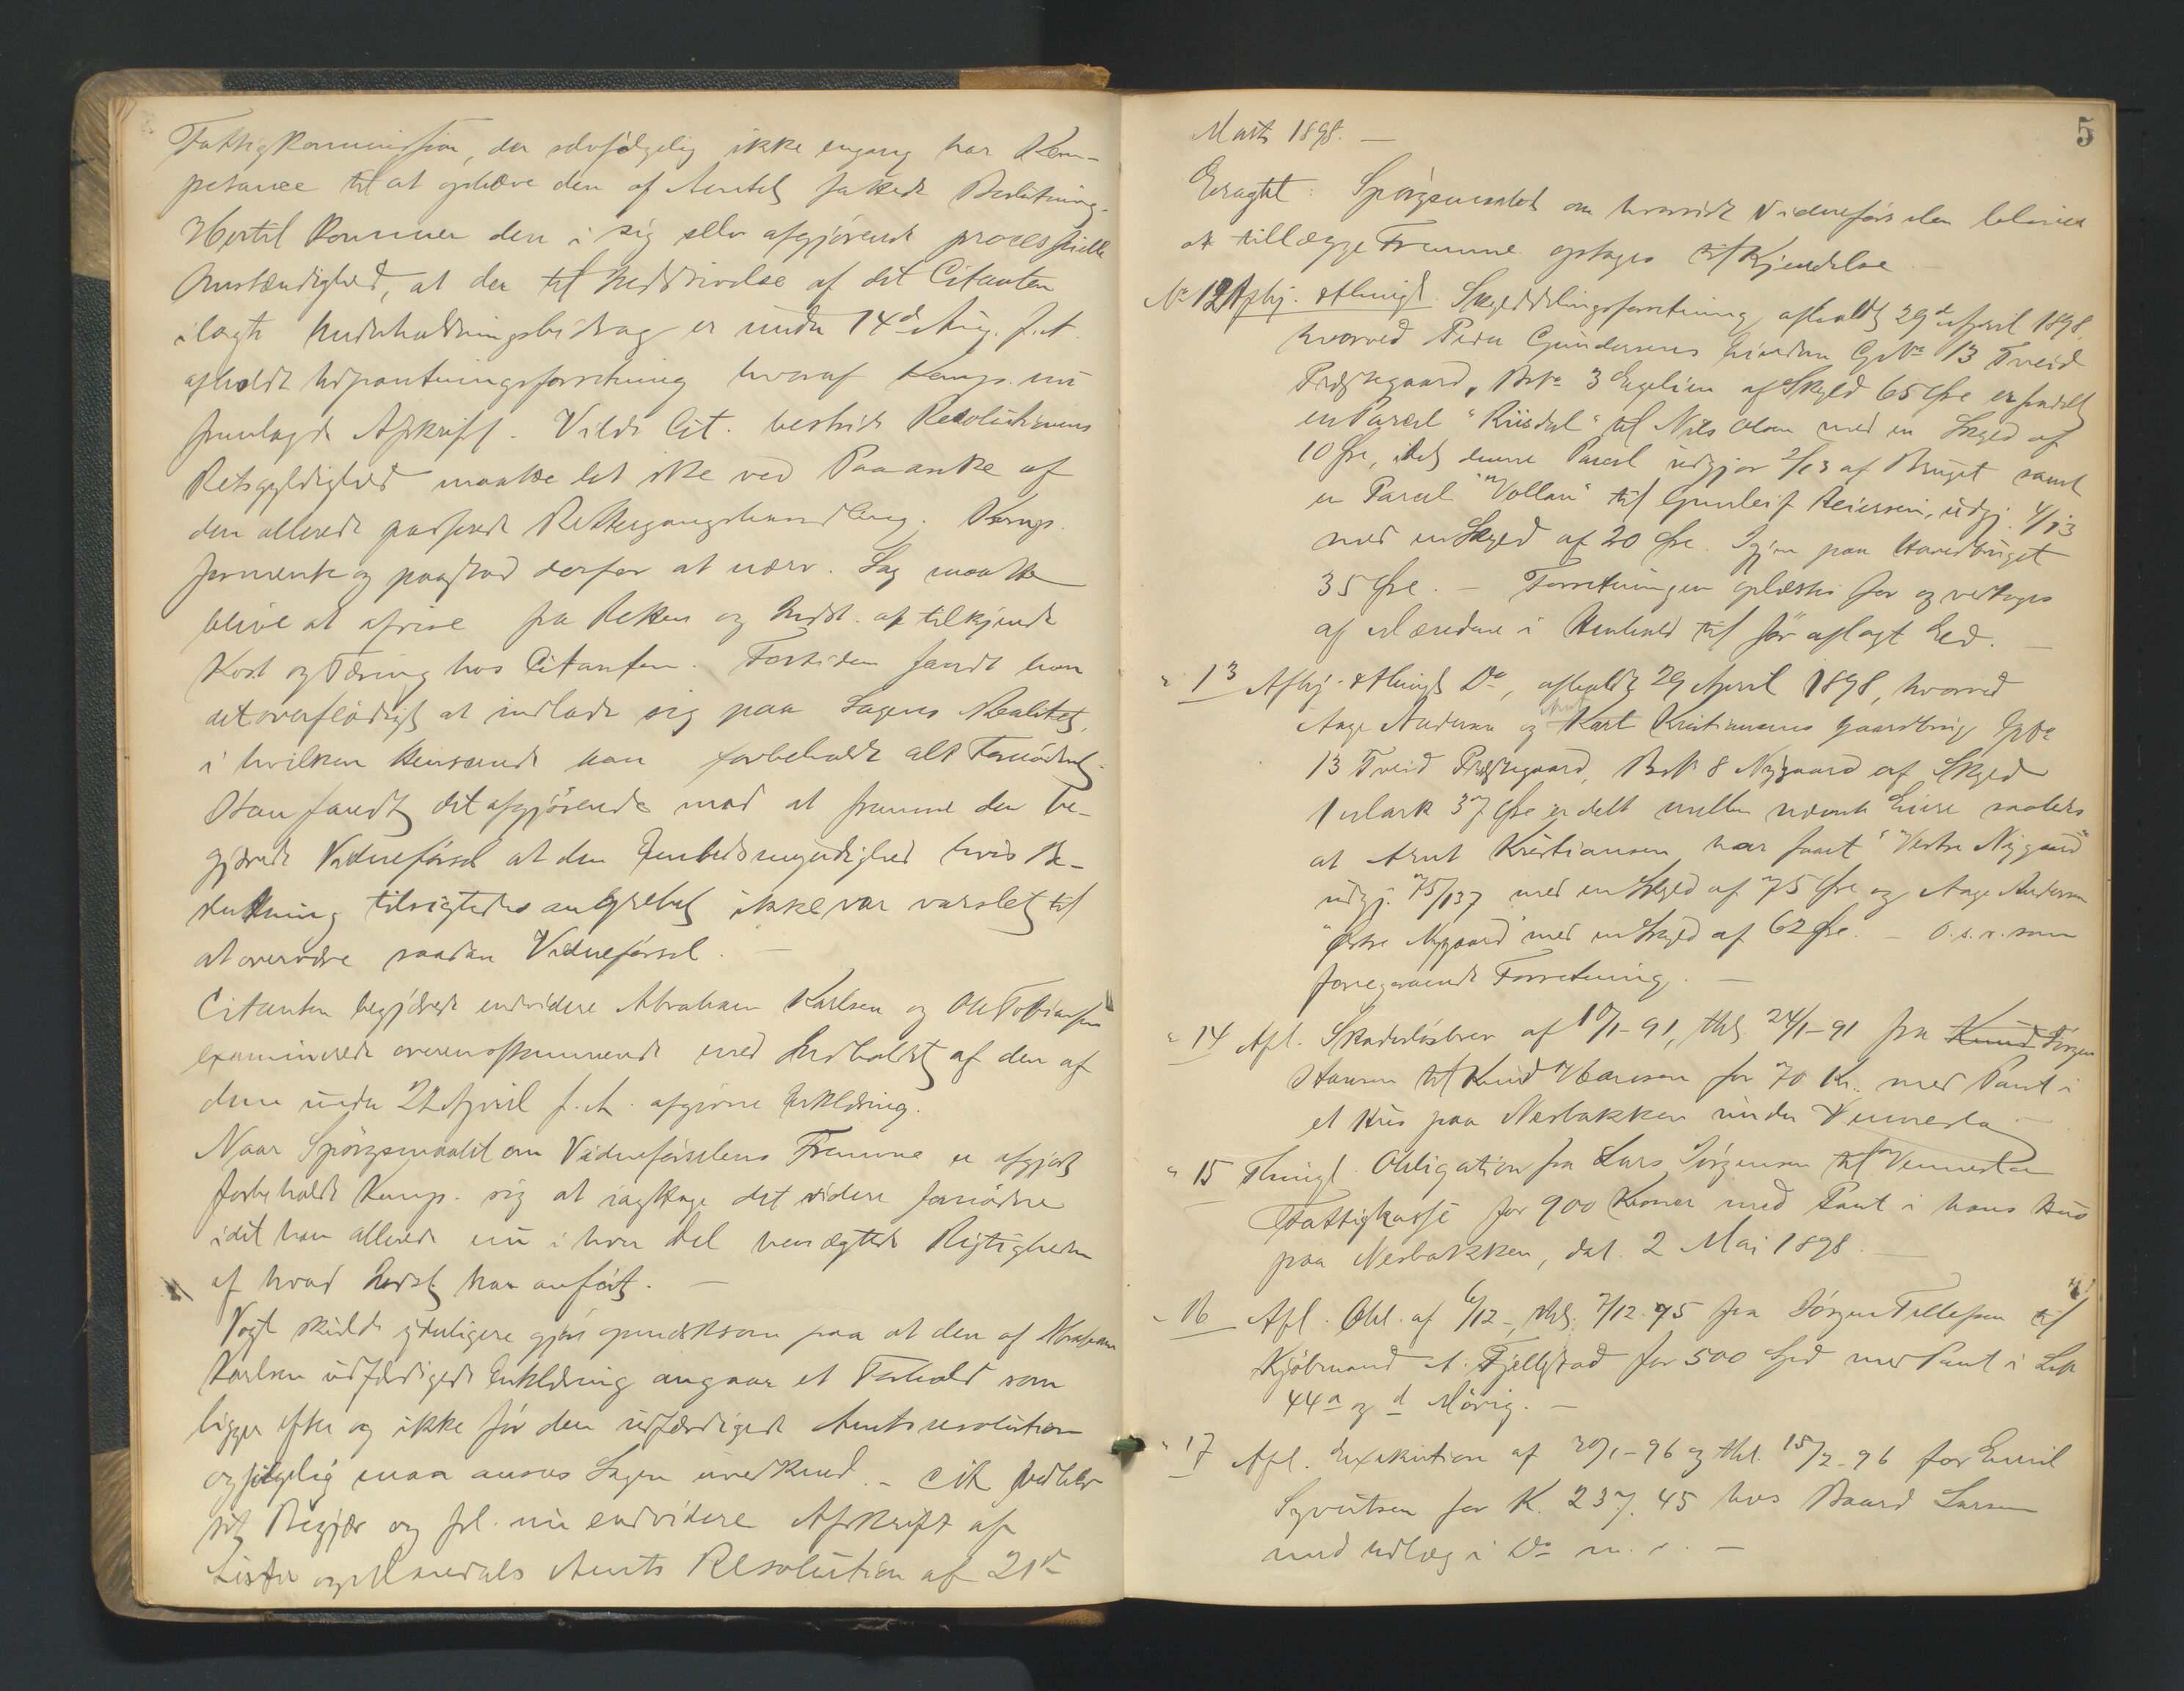 Fattigkommission, der selvfølgelig ikke engang har Kom-
petance til at ophæve den af Amtet fattede Beslutning.
Hertil kommer den i sig selv afgjørende processuelle
Omstændighed, at der til Inddrivelse af det Citanten
ilagte Underholdningsbidrag er under 14de Aug. f.A.
afholdt Udpantningsforretning hvoraf Komp. nu
fremlagde Afskrift. Vilde Cit. bestride Resolutionens
Retsgyldighed maatte det ske ved Paaanke af
den allerede passerede Rettergangshandling. Komp.
formente og paastod derfor at nærv. Sag maatte
blive at afvise fra Retten og Indst. at tilkjende
Kost og Tæring hos Citanten. Forsiden fandt han
det overflødigt at indlade sig paa Sagens Realitet,
i hvilken Henseende han forbeholdt alt Fornødent.
Han fandt det afgjørende mod at fremme den be-
gjærede Vidneførsel at den Embedsmyndighed hvis Be-
slutning tilsigtedes angrebet ikke var varslet til
at overvære saadan Vidneførsel. —
Citanten begjærede endvidere Abraham Karlsen og Ole Tobiassen
examinerede overensstemmende med Indholdet af den af
dem under 22 April f.A. afgivne Erklæring.
Naar Spørgsmaalet om Vidneførselens Fremme er afgjort
forbeholdt Komp. sig at iagttage det videre fornødne
idet han allerede nu i hver Del benægtede Rigtigheden
af hvad Indst. har anført. —
Vogt skulde yderligere gjøre opmærksom paa at den af Abraham
Karlsen udfærdigede Erklæring angaar et Forhold som
ligger efter og ikke før den udfærdigede Amtsresolution
og følgelig maa ansees Sagen uvedkmd. – Cit. vedblev
sit Begjær og frl. nu endvidere Afskrift af
Lister og Mandals Amts Resolution af 21de
5
Marts 1898. —
Eragtet: Spørgsmaalet om hvorvidt Vidneførselen bliver
at tillægge Fremme optages til Kjendelse. —
No 12 Afhj. & thingl. Skylddelingsforretning afholdt 29de April 1898,
hvorved Peder Gundersens Eiendom Gno 13 Tveid
Præstegaard, Bno 3 Engelien af Skyld 65 Øre er fradelt
en Parcel "Riisdal" til Nils Olsen med en Skyld af
10 Øre, idet denne Parcel udgjør 2/13 af Bruget samt
en Parcel "Vollan" til Gunleif Reiersen, udgj. 4/13
med en Skyld af 20 Øre. Igjen paa Hovedbruget
35 Øre. — Forretningen oplæstes for og vedtoges
af Mændene i Henhold til før aflagt Ed. —
" 13 Afhj. & thingl. Do, afholdt 29 April 1898, hvorved
Arnt
Aage Andersen og Kart Kristiansens Gaardbrug Gno
13 Tveid Præstegaard, Bno 8 Nygaard af Skyld
1 Mark 37 Øre er delt mellem nævnte Eiere saaledes
at Arnt Kristiansen har faaet "Vestre Nygaard"
udgj. 75/137 med en Skyld af 75 Øre og Aage Andersen
"Østre Nygaard" med en Skyld af 62 Øre. — O.s.v. som
foregaaende Forretning. —
" 14 Afl. Skadesløsbrev af 10/1-91, thl. 24/1-91 fra Knud Jørgen
Hansen til Knud Hansen for 70 Kr. med Pant i
et Hus paa Nesbakken under Vennesla —
" 15 Thingl. Obligation fra Lars Jørgensen til Vennesla
Fattigkasse for 900 Kroner med Pant i hans Hus
paa Nesbakken, dat. 2 Mai 1898. —
" 16 Afl. Obl. af 6/12-, thl. 7/12.75 fra Jørgen Tellefsen til
Kjøbmand A. Fjellstad for 500 Spd med Pant i Lno
44a og d Mørig. —
" 17 Afl. Exekution af 20/1-96 og thl. 15/2-96 for Emil
Syvertsen for K. 237.45 hos Baard Larsen
med Udlæg i Do m. v. —